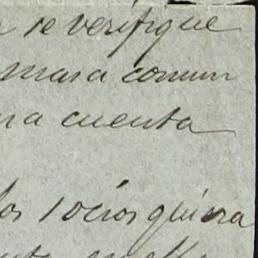 se verifique
masa comun
na cuenta
los socios quiera